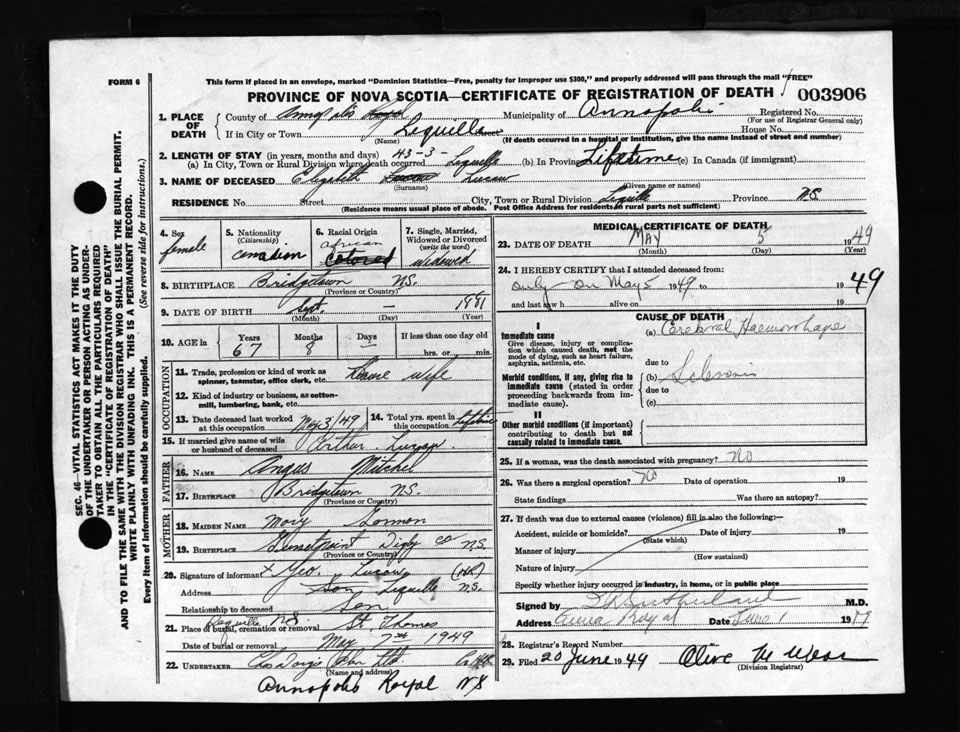 FORM 6
This form if placed in an envelope, marked "Dominion Statistics—Free, penalty for improper use $300," and properly addressed will pass through the mail "FREE"
PROVINCE OF NOVA SCOTIA—CERTIFICATE OF REGISTRATION OF DEATH
003906
1. PLACE OF DEATH
County of Annapolis Royal Municipality of Annapolis Registered No.
(For use of Registrar General only)
If in City or Town Lequille House No.
(Name) (If death occurred in a hospital or institution, give the name instead of street and number)
2. LENGTH OF STAY (in years, months and days)
(a) In City, Town or Rural Division where death occurred 43-3- Lequille (b) In Province Lifetime (c) In Canada (if immigrant)
3. NAME OF DECEASED Elizabeth
(Surname) (Given name or names)
RESIDENCE No. Street City, Town or Rural Division Lequille Province N.S.
(Residence means usual place of abode. Post Office Address for residents in rural parts not sufficient)
4. Sex
female
5. Nationality
(Citizenship)
Canadian
6. Racial Origin
African
Colored
7. Single, Married, Widowed or Divorced
(write the word)
widowed
8. BIRTHPLACE Bridgetown N.S.
(Province or Country)
9. DATE OF BIRTH Sept. — 1881
(Month) (Day) (Year)
10. AGE in
Years Months Days If less than one day old
67 8 — hrs. or min.
OCCUPATION
11. Trade, profession or kind of work as spinner, teamster, office clerk, etc. House wife
12. Kind of industry or business, as cotton-mill, lumbering, bank, etc.
13. Date deceased last worked at this occupation May 3/49
14. Total yrs. spent in this occupation lifetime
15. If married give name of wife or husband of deceased Arthur
FATHER
16. NAME Angus Mitchel
17. BIRTHPLACE Bridgetown N.S.
(Province or Country)
MOTHER
18. MAIDEN NAME Mary
19. BIRTHPLACE Digby Co N.S.
(Province or Country)
20. Signature of informant x Geo.
Address Lequille N.S.
Relationship to deceased Son
21. Place of burial, cremation or removal Lequille N.S. St. Thomas
Date of burial or removal May 7th 1949
22. UNDERTAKER
(Name and address)
Annapolis Royal NS
MEDICAL CERTIFICATE OF DEATH
23. DATE OF DEATH MAY 5 1949
(Month) (Day) (Year)
24. I HEREBY CERTIFY that I attended deceased from:
only on May 5 1949 to 1949
and last saw h alive on 19
CAUSE OF DEATH
I
Immediate cause
Give disease, injury or complication which caused death, not the mode of dying, such as heart failure, asphyxia, asthenia, etc.
(a) Cerebral Haemorrhage
due to
Morbid conditions, if any, giving rise to immediate cause (stated in order proceeding backwards from immediate cause).
(b) Sclerosis
due to
(c)
II
Other morbid conditions (if important) contributing to death but not causally related to immediate cause.
25. If a woman, was the death associated with pregnancy? No
26. Was there a surgical operation? No Date of operation 19
State findings Was there an autopsy?
27. If death was due to external causes (violence) fill in also the following:—
Accident, suicide or homicide? Date of injury 19
(State which)
Manner of injury
(How sustained)
Nature of injury
Specify whether injury occurred in industry, in home, or in public place
Signed by M.D.
Address Anna Royal Date June 1 1949
28. Registrar's Record Number
29. Filed 20 June 1949
(Division Registrar)
SEC. 46—VITAL STATISTICS ACT MAKES IT THE DUTY OF THE UNDERTAKER OR PERSON ACTING AS UNDERTAKER TO OBTAIN ALL THE PARTICULARS REQUIRED IN THE "CERTIFICATE OF REGISTRATION OF DEATH" AND TO FILE THE SAME WITH THE DIVISION REGISTRAR WHO SHALL ISSUE THE BURIAL PERMIT.
WRITE PLAINLY WITH UNFADING INK. THIS IS A PERMANENT RECORD.
Every item of information should be carefully supplied. (See reverse side for instructions.)